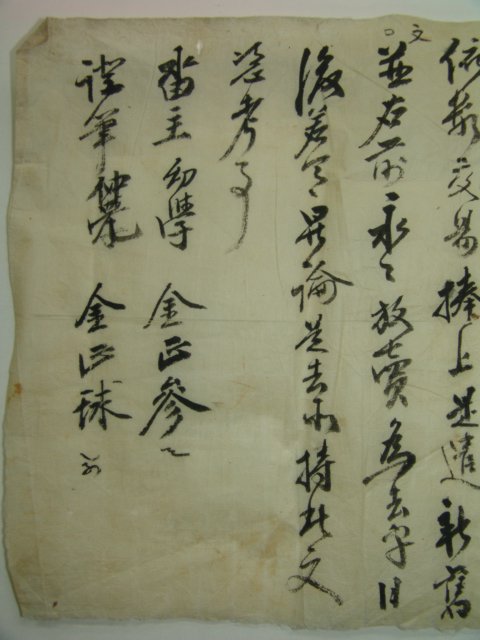 依數交易捧上是遣新舊
文
並右前永々放賣爲去乎日
後若有異論是去等持此文
憑考事
畓主幼學 金正參
證筆仲兄 金正球